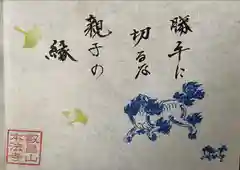 勝手に
切るな
親子の
縁
叡昌山
本法寺